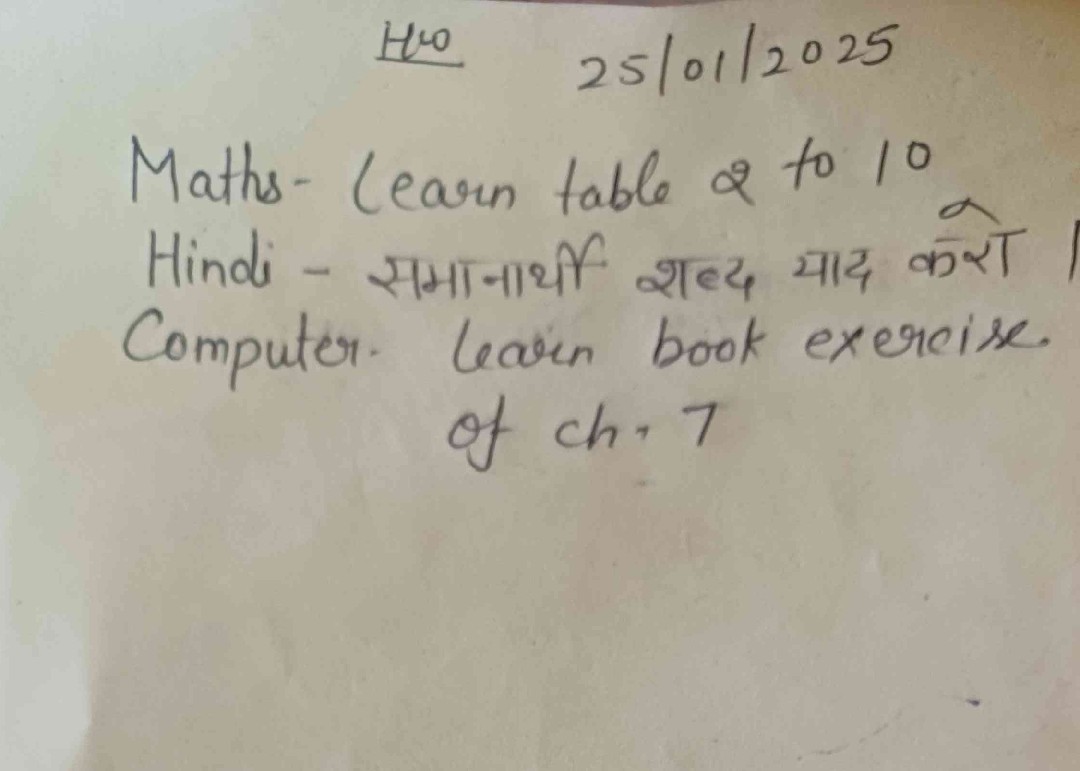 H.W 25/01/2025
Maths- Learn table 2 to 10
Hindi - समानार्थी शब्द याद करो ।
Computer- learn book exercise.
of ch. 7